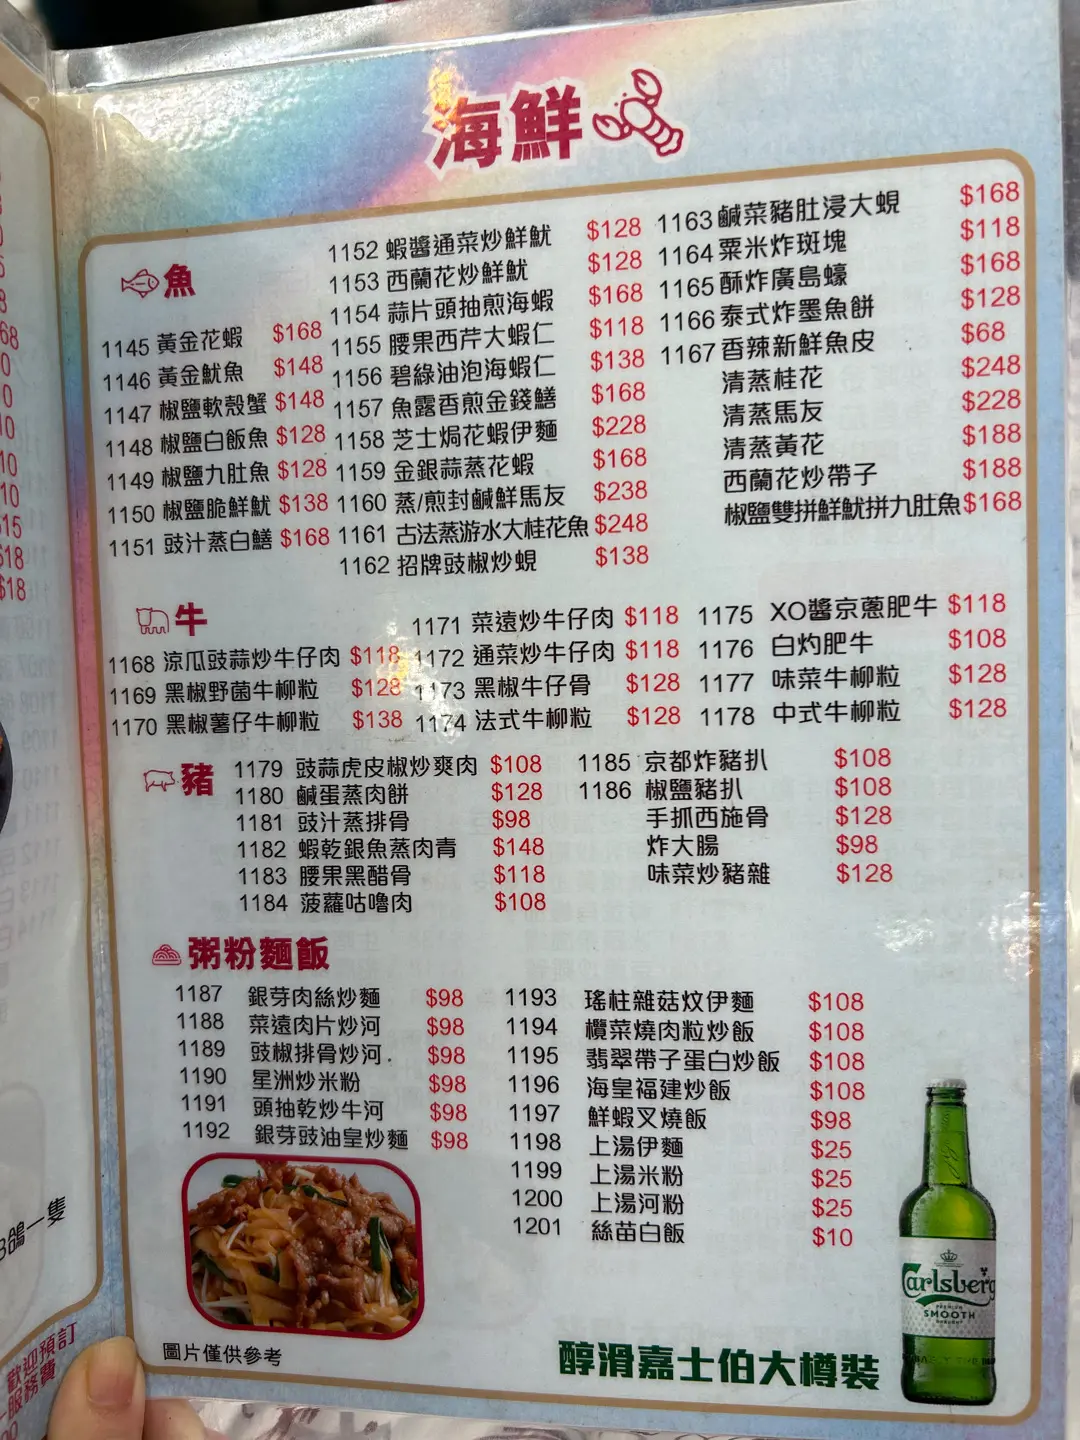 海鮮
魚
1145 黃金花蝦 $168
1146 黃金魷魚 $148
1147 椒鹽軟殼蟹 $148
1148 椒鹽白飯魚 $128
1149 椒鹽九肚魚 $128
1150 椒鹽脆鮮魷 $138
1151 豉汁蒸白鱔 $168
1152 蝦醬通菜炒鮮魷 $128
1153 西蘭花炒鮮魷 $128
1154 蒜片頭抽煎海蝦 $168
1155 腰果西芹大蝦仁 $118
1156 碧綠油泡海蝦仁 $138
1157 魚露香煎金錢鱔 $168
1158 芝士焗花蝦伊麵 $228
1159 金銀蒜蒸花蝦 $168
1160 蒸/煎封鹹鮮馬友 $238
1161 古法蒸游水大桂花魚 $248
1162 招牌豉椒炒蜆 $138
1163 鹹菜豬肚浸大蜆 $168
1164 粟米炸斑塊 $118
1165 酥炸廣島蠔 $168
1166 泰式炸墨魚餅 $128
1167 香辣新鮮魚皮 $68
清蒸桂花 $248
清蒸馬友 $228
清蒸黃花 $188
西蘭花炒帶子 $188
椒鹽雙拼鮮魷拼九肚魚 $168
牛
1168 涼瓜豉蒜炒牛仔肉 $118
1169 黑椒野菌牛柳粒 $128
1170 黑椒薯仔牛柳粒 $138
1171 菜遠炒牛仔肉 $118
1172 通菜炒牛仔肉 $118
1173 黑椒牛仔骨 $128
1174 法式牛柳粒 $128
1175 XO醬京蔥肥牛 $118
1176 白灼肥牛 $108
1177 味菜牛柳粒 $128
1178 中式牛柳粒 $128
豬
1179 豉蒜虎皮椒炒爽肉 $108
1180 鹹蛋蒸肉餅 $128
1181 豉汁蒸排骨 $98
1182 蝦乾銀魚蒸肉青 $148
1183 腰果黑醋骨 $118
1184 菠蘿咕嚕肉 $108
1185 京都炸豬扒 $108
1186 椒鹽豬扒 $108
手抓西施骨 $128
炸大腸 $98
味菜炒豬雜 $128
粥粉麵飯
1187 銀芽肉絲炒麵 $98
1188 菜遠肉片炒河 $98
1189 豉椒排骨炒河 $98
1190 星洲炒米粉 $98
1191 頭抽乾炒牛河 $98
1192 銀芽豉油皇炒麵 $98
1193 瑤柱雜菇炆伊麵 $108
1194 欖菜燒肉粒炒飯 $108
1195 翡翠帶子蛋白炒飯 $108
1196 海皇福建炒飯 $108
1197 鮮蝦叉燒飯 $98
1198 上湯伊麵 $25
1199 上湯米粉 $25
1200 上湯河粉 $25
1201 絲苗白飯 $10
圖片僅供參考
醇滑嘉士伯大樽裝
Carlsberg
SMOOTH
鴿一隻
歡迎預訂
服務費